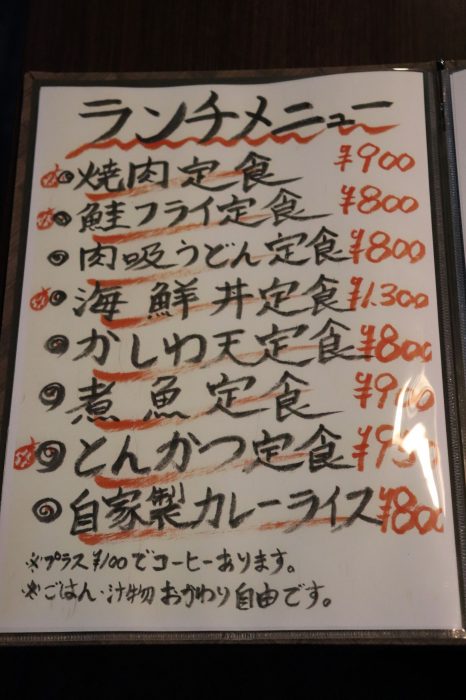 ランチメニュー
焼肉定食 ¥900
鮭フライ定食 ¥800
肉吸うどん定食 ¥800
海鮮丼定食 ¥1.300
かしわ天定食 ¥800
煮魚定食 ¥900
とんかつ定食 ¥950
自家製カレーライス ¥800
※プラス¥100でコーヒーあります。
※ごはん・汁物おかわり自由です。